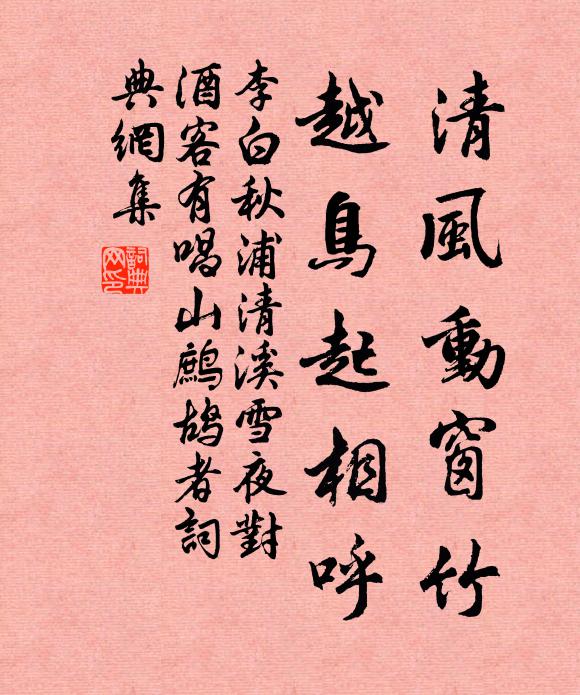 清風動窗竹
越鳥起相呼
李白秋浦清溪雪夜對
酒客有唱山鷓鴣者詞
典網集
詞典
网印